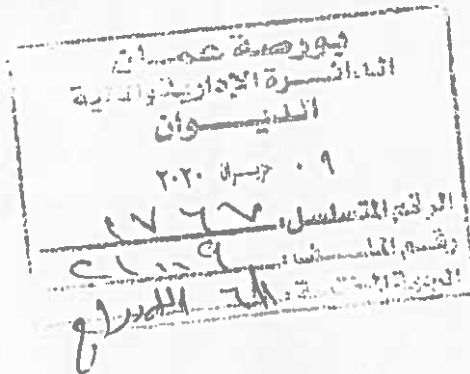 بورصة عمان
الدائرة الإدارية والمالية
الديوان
٠٩ حزيران ٢٠٢٠
الرقم المتسلسل: ١٧٦٧
رقم الملف:
الجهة المختصة: